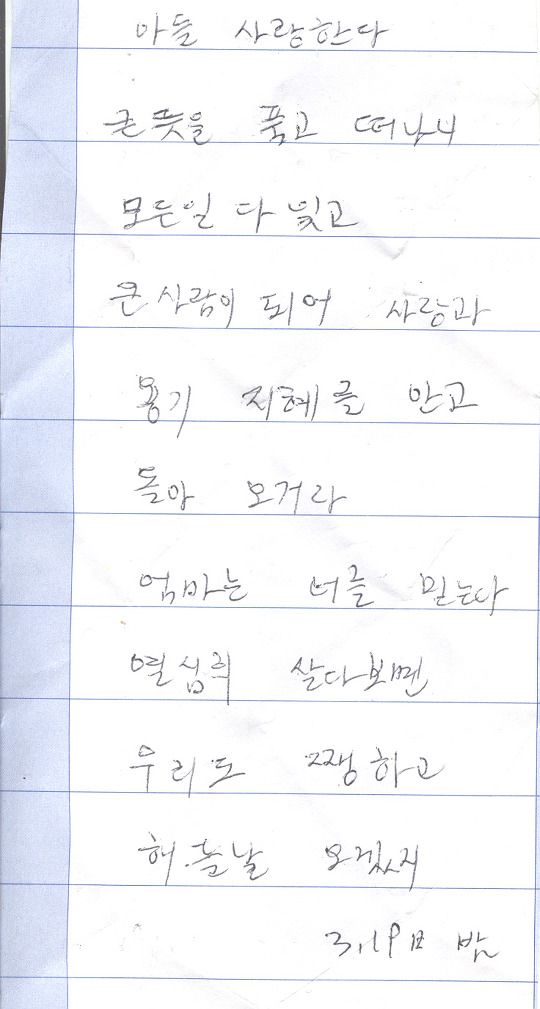 아들 사랑한다
큰 뜻을 품고 떠나니
모든일 다 잊고
큰 사람이 되어 사랑과
용기 지혜를 안고
돌아 오거라
엄마는 너를 믿는다
열심히 살다보면
우리도 쨍하고
해.뜰날 오겠지
3,19日 밤